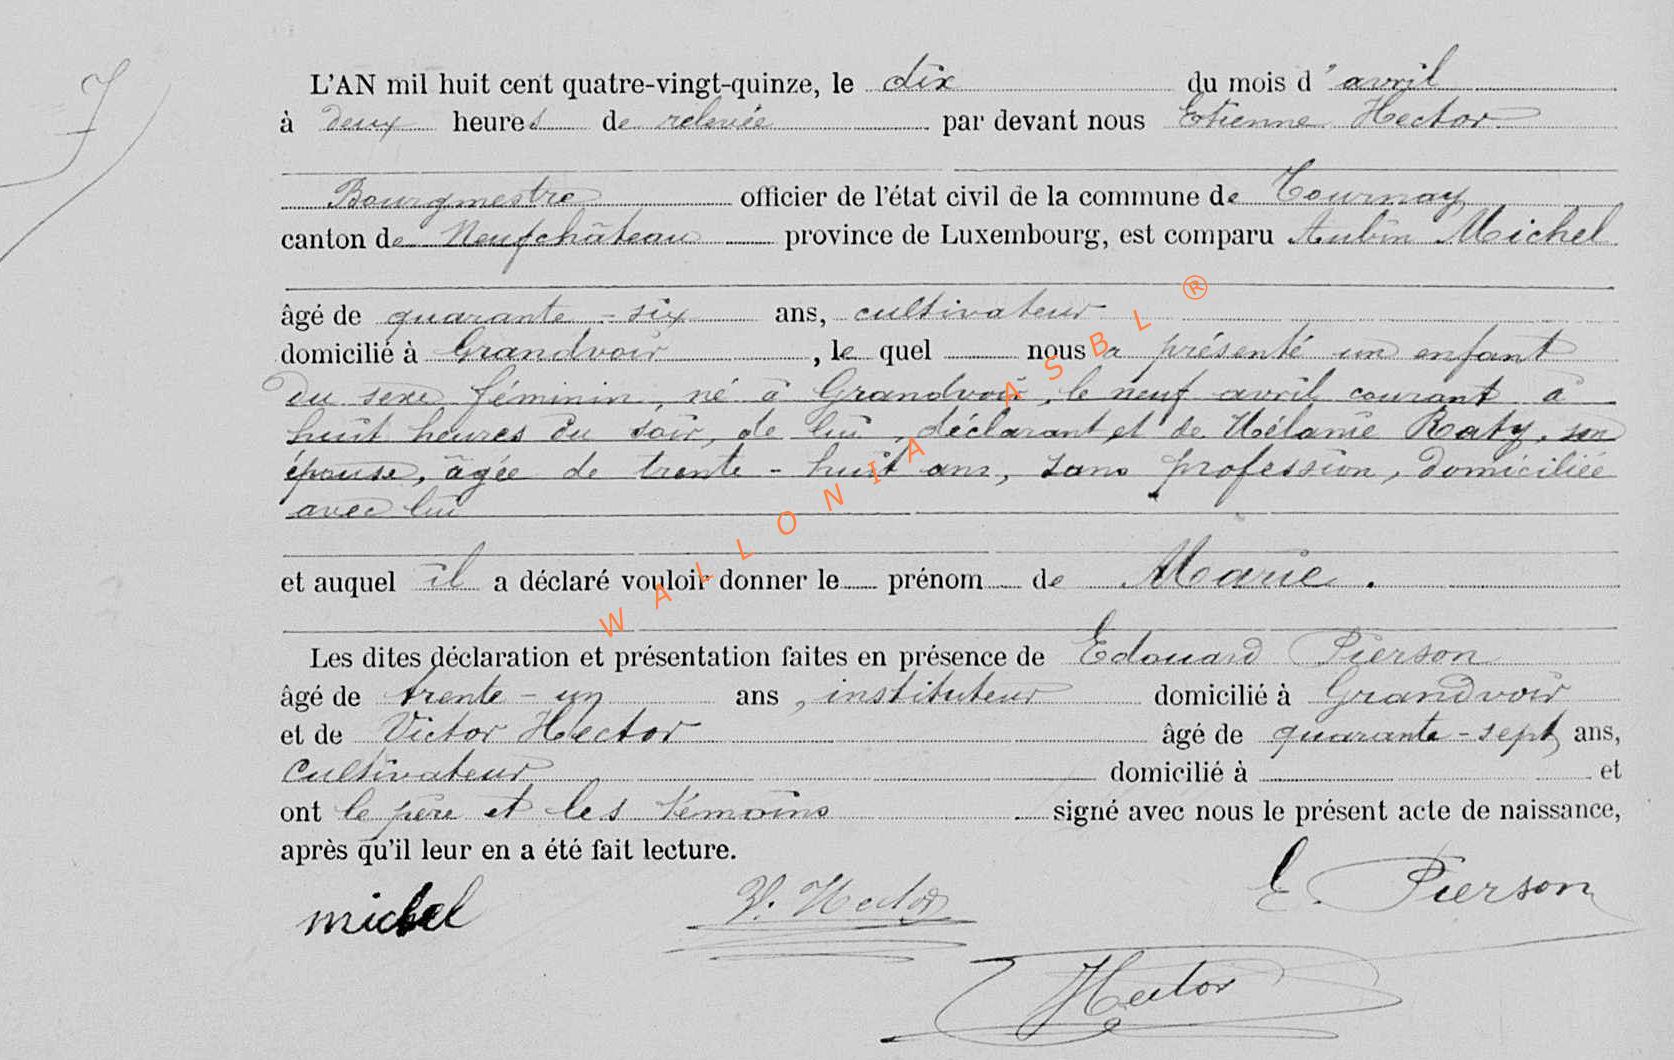 L'AN mil huit cent quatre-vingt-quinze, le dix du mois d'avril
à deux heures de relevée par devant nous Etienne Hector
Bourgmestre officier de l'état civil de la commune de Tournay,
canton de Neufchâteau province de Luxembourg, est comparu Aubin Michel
âgé de quarante-six ans, cultivateur
domicilié à Grandvoir, le quel nous a présenté un enfant
du sexe féminin, né à Grandvoir, le neuf avril courant à
huit heures du soir, de lui, déclarant et de Mélanie Raty, son
épouse, âgée de trente-huit ans, sans profession, domiciliée
avec lui
et auquel il a déclaré vouloir donner le prénom de Marie.
Les dites déclaration et présentation faites en présence de Edouard Pierson
âgé de trente-un ans, instituteur domicilié à Grandvoir
et de Victor Hector âgé de quarante-sept ans,
cultivateur domicilié à et
ont le père et les témoins signé avec nous le présent acte de naissance,
après qu'il leur en a été fait lecture.
michel V. Hector E. Pierson
Hector
WALLONIA ASBL ®